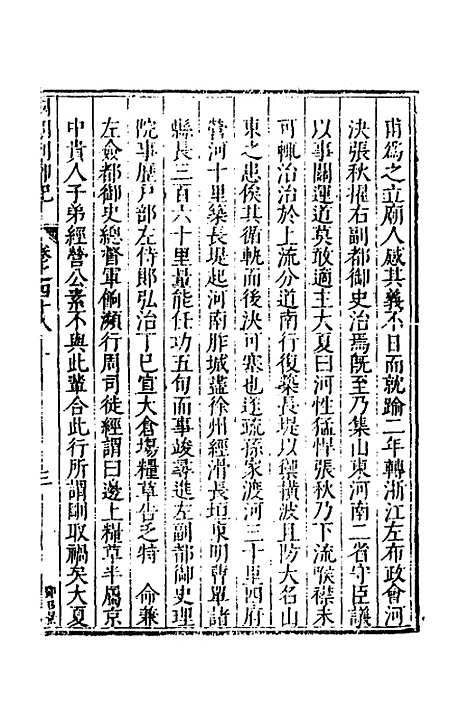 甫爲之立廟人感其義不日而就踰二年轉浙江左布政會河
決張秋擢右副都御史治焉旣至乃集山東河南二省守臣議
以事關運道莫敢適主大夏曰河性猛悍張秋乃下流喉襟未
可輒治治於上流分道南行復築長堤以禦橫波且防大名山
東之患俟其循軌而後決可塞也遂疏孫家渡河三十里四府
營河十里築長堤起河南胙城盡徐州經滑長垣東明曹單諸
縣長三百六十里量能任功五旬而事竣尋進左副都御史理
院事歷戶部左侍郎弘治丁巳宣大倉場糧草告乏特 命兼
左僉都御史總督軍餉瀕行周司徒經謂曰邊上糧草半屬京
中貴人子弟經營公素不與此輩合此行所謂剛取禍矣大夏
卷之四十八